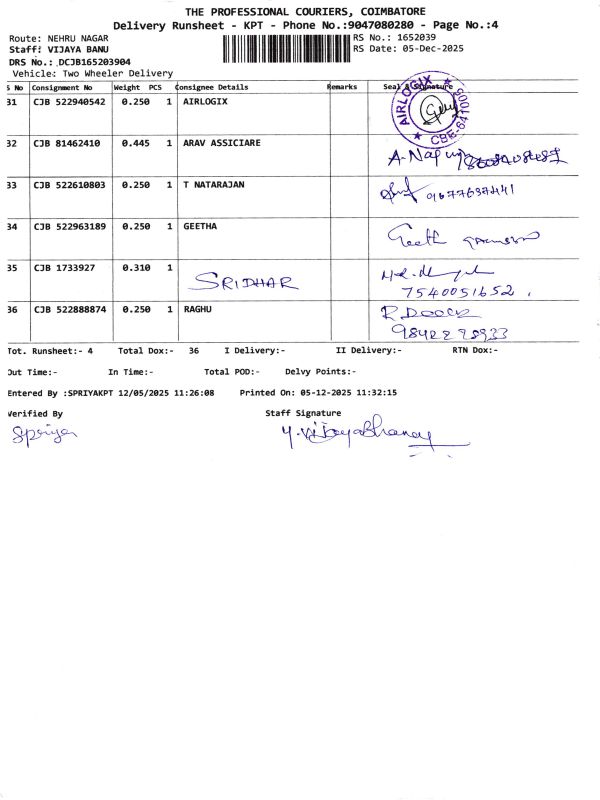 THE PROFESSIONAL COURIERS, COIMBATORE
Delivery Runsheet - KPT - Phone No.:9047080280 - Page No.:4
Route: NEHRU NAGAR RS No.: 1652039
Staff: VIJAYA BANU RS Date: 05-Dec-2025
DRS No.: DCJB165203904
Vehicle: Two Wheeler Delivery
S No Consignment No Weight PCS Consignee Details Remarks Seal & Signature
31 CJB 522940542 0.250 1 AIRLOGIX
AIRLOGIX
32 CJB 81462410 0.445 1 ARAV ASSICIARE
33 CJB 522610803 0.250 1 T NATARAJAN
34 CJB 522963189 0.250 1 GEETHA
35 CJB 1733927 0.310 1 SRIDHAR
7540051652
36 CJB 522888874 0.250 1 RAGHU
Tot. Runsheet:- 4 Total Dox:- 36 I Delivery:- II Delivery:- RTN Dox:-
Out Time:- In Time:- Total POD:- Delvy Points:-
Entered By :SPRIYAKPT 12/05/2025 11:26:08 Printed On: 05-12-2025 11:32:15
Verified By Staff Signature
Spriya